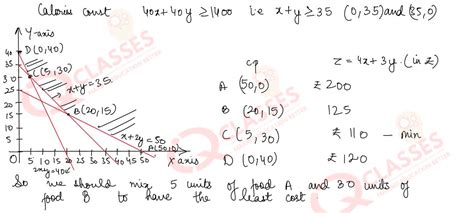 Calories const 40x+40y ≥1400 i.e x+y ≥ 35 (0,35) and (35,0)
Y-axis
40 D(0,40)
35
30 C(5,30)
25
20
15
10
5
0
x+y=35
B(20,15)
x+2y=50
A(50,0)
5 10 15 20 25 30 35 40 45 50
X axis
2x+y=40
cp z = 4x+3y (in ₹)
A (50,0) ₹ 200
B (20,15) 125
C (5,30) ₹ 110 – min
D (0,40) ₹ 120
So we should mix 5 units of food A and 30 units of
food B to have the least cost.
CLASSES
CLASSES